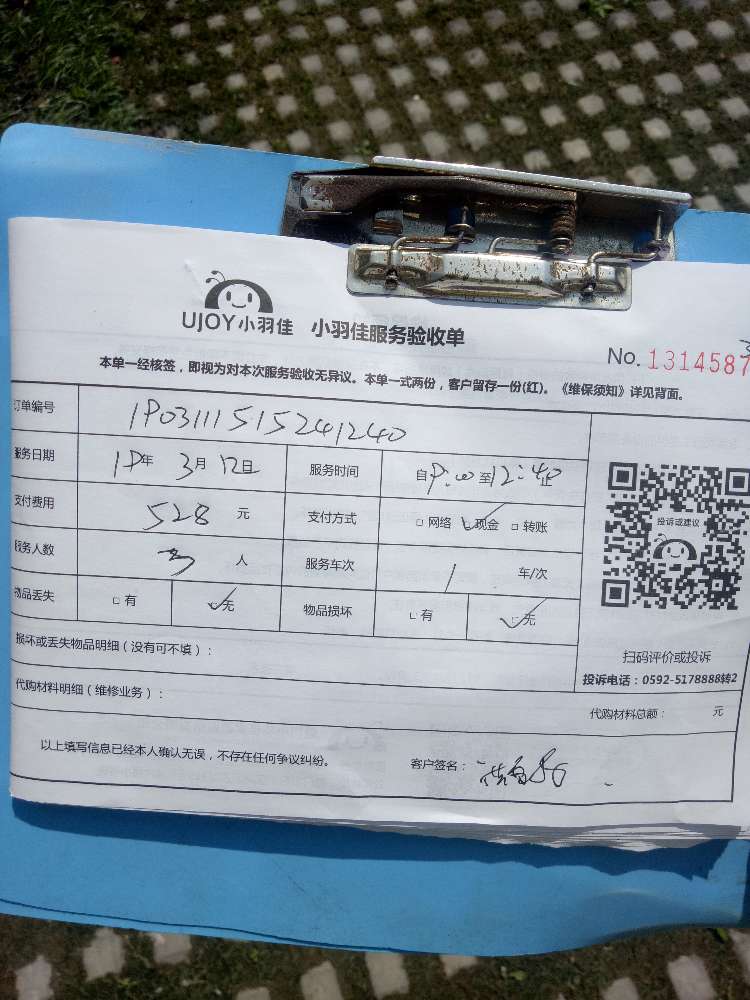 UJOY小羽佳 小羽佳服务验收单
No. 1314587
本单一经核签，即视为对本次服务验收无异议。本单一式两份，客户留存一份(红)。《维保须知》详见背面。
订单编号 1903111515241240
服务日期 19年 3月 12日 服务时间 自9:00至12:40止
支付费用 528 元 支付方式 □网络 ☑现金 □转账
服务人数 3 人 服务车次 1 车/次
物品丢失 □有 ☑无 物品损坏 □有 ☑无
投诉或建议
扫码评价或投诉
投诉电话：0592-5178888转2
损坏或丢失物品明细（没有可不填）：
代购材料明细（维修业务）：
代购材料总额： 元
以上填写信息已经本人确认无误，不存在任何争议纠纷。 客户签名：